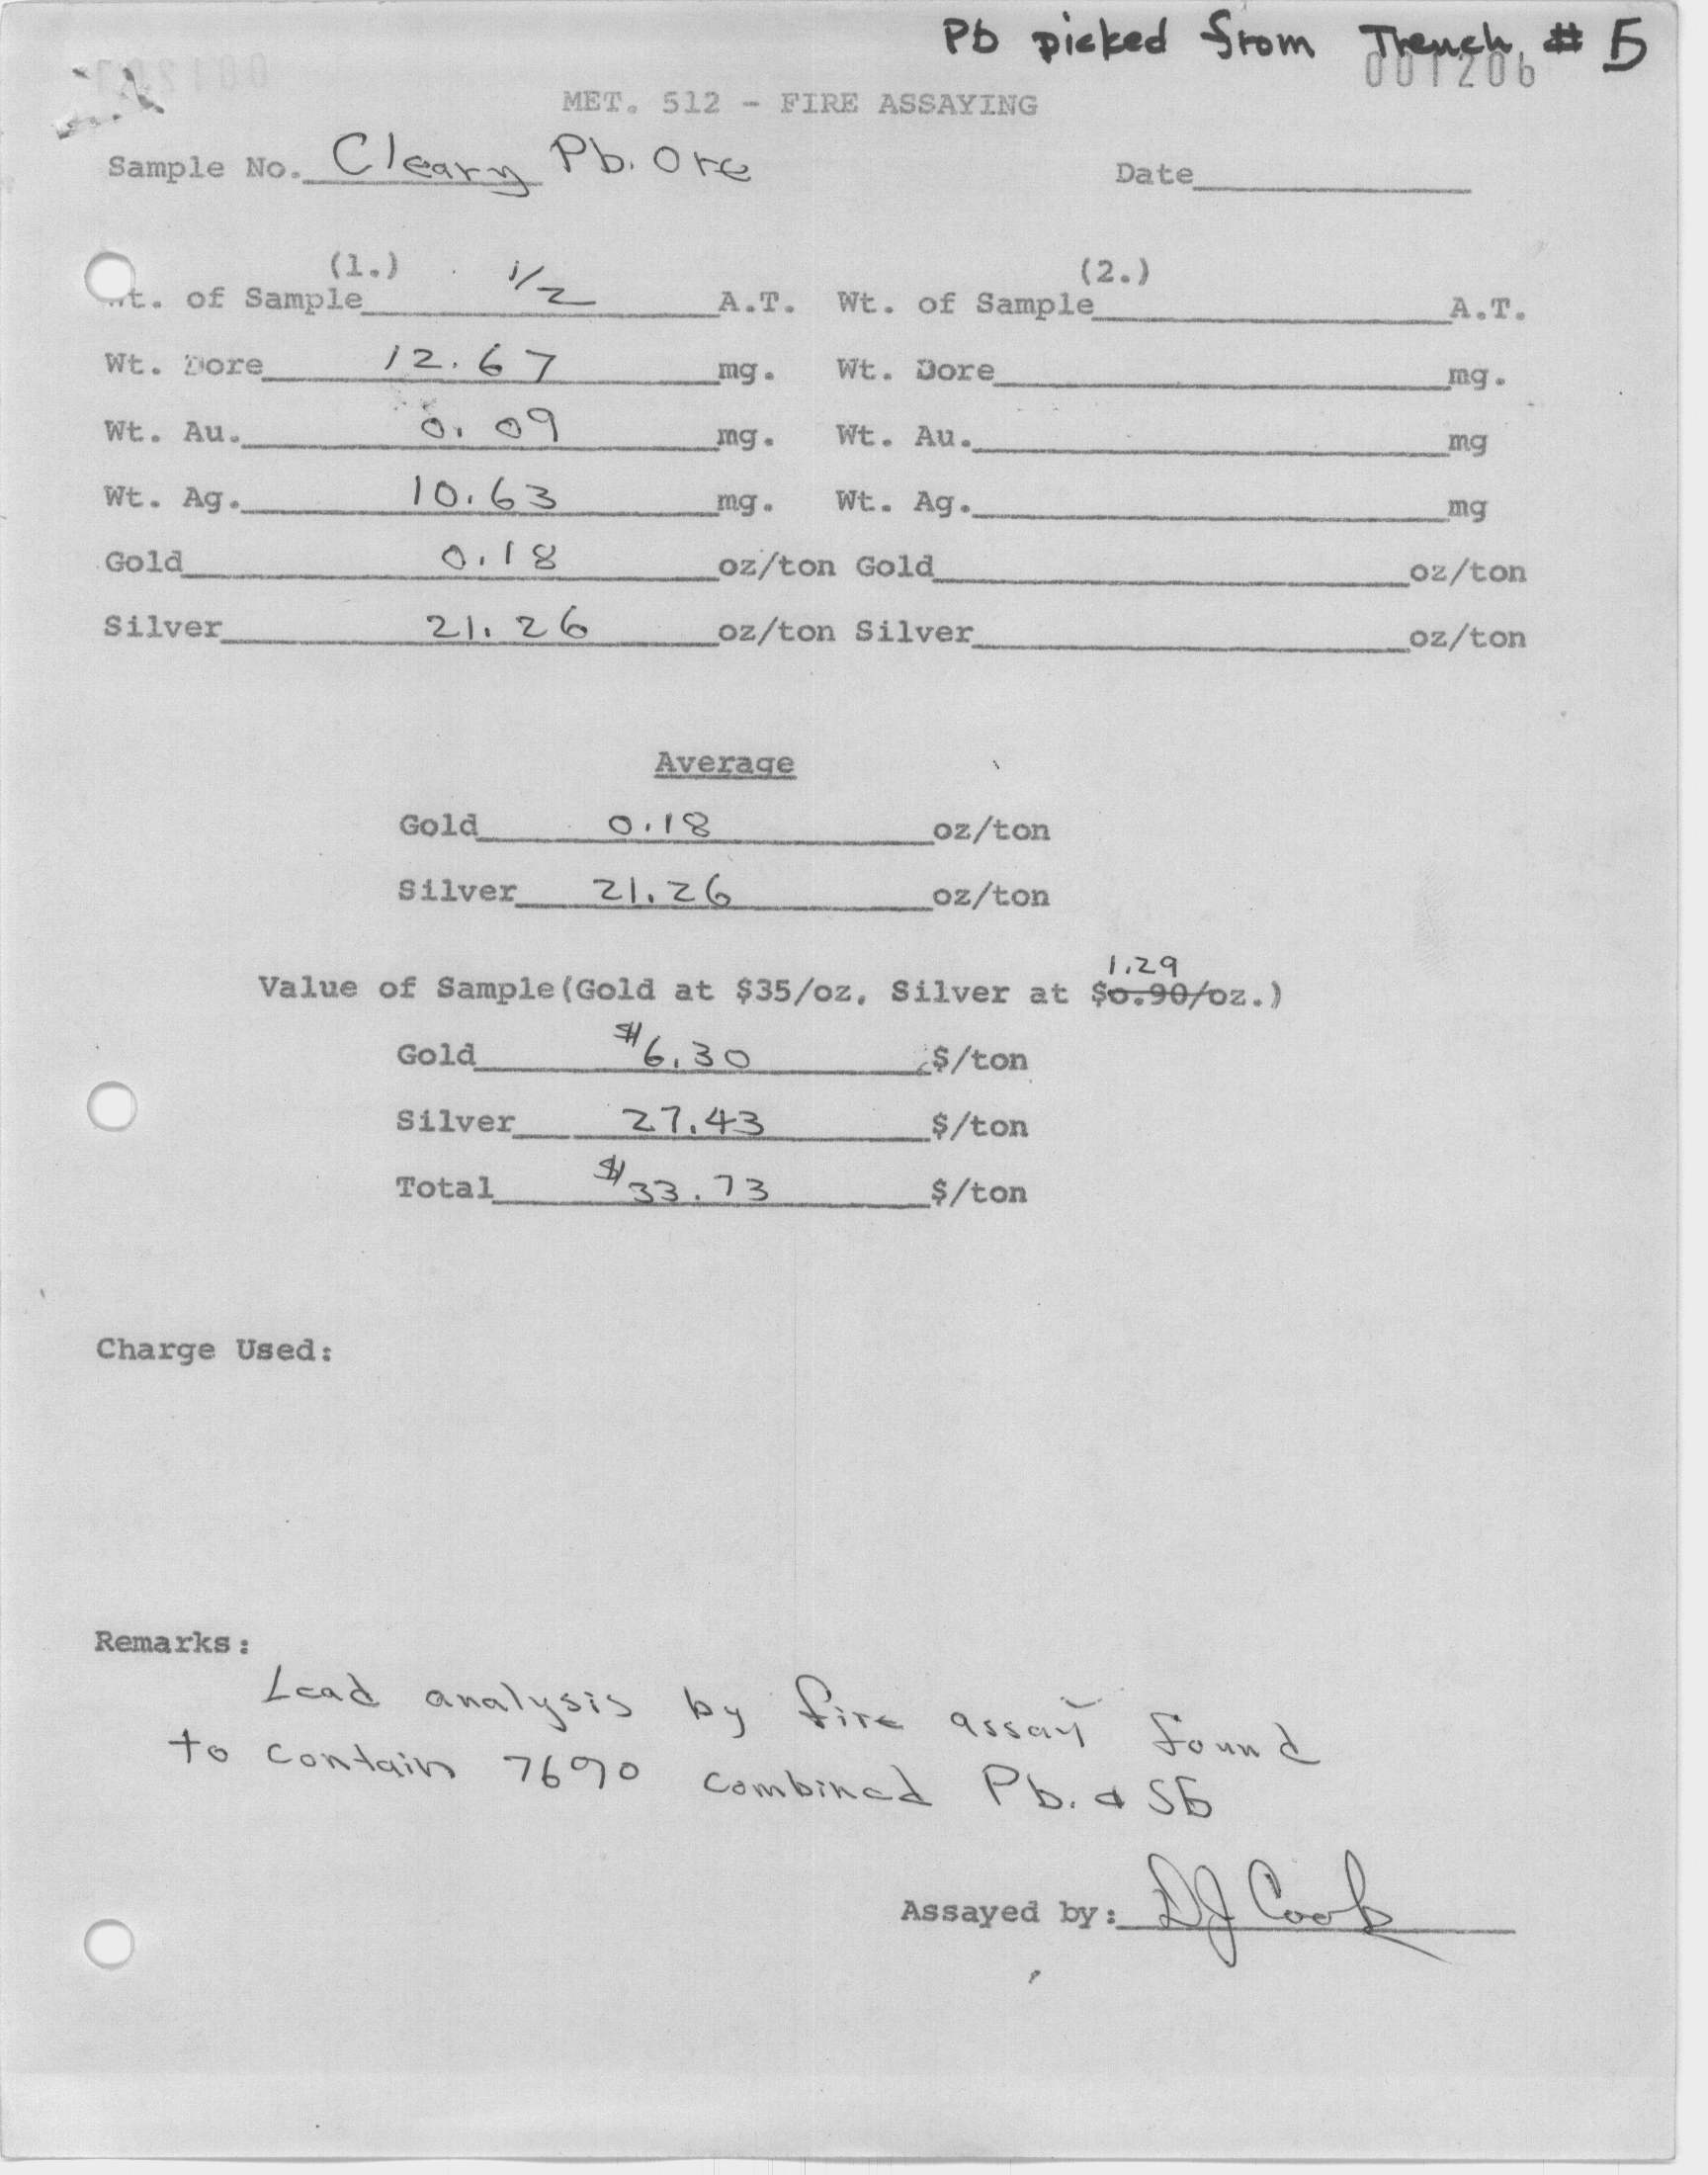 Pb picked from Trench # 5
001206
MET. 512 - FIRE ASSAYING
Sample No. Cleary Pb. Ore Date
(1.) (2.)
Wt. of Sample 1/2 A.T. Wt. of Sample A.T.
Wt. Dore 12.67 mg. Wt. Dore mg.
Wt. Au. 0.09 mg. Wt. Au. mg
Wt. Ag. 10.63 mg. Wt. Ag. mg
Gold 0.18 oz/ton Gold oz/ton
Silver 21.26 oz/ton Silver oz/ton
Average
Gold 0.18 oz/ton
Silver 21.26 oz/ton
1.29
Value of Sample(Gold at $35/oz, Silver at $0.90/oz.)
Gold $6.30 $/ton
Silver 27.43 $/ton
Total $33.73 $/ton
Charge Used:
Remarks:
Lead analysis by fire assay found
to contain 76% combined Pb. & Sb
Assayed by: DJ Cook